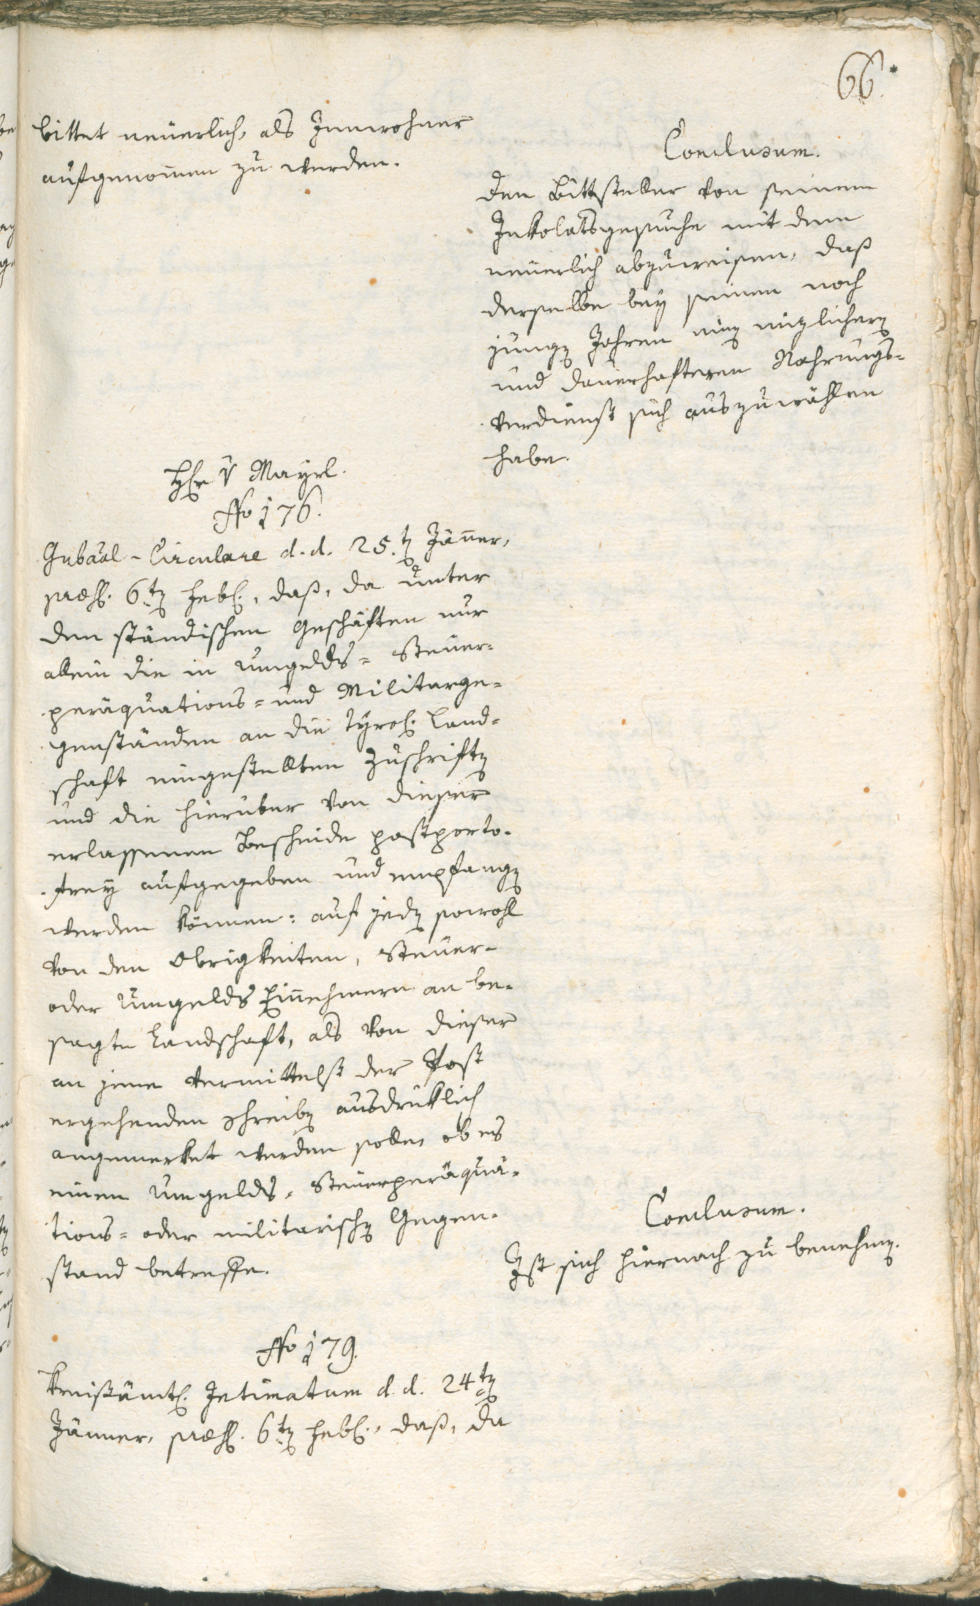 66.
bittet neuerlich, als Innwohner
aufgenommen zu werden.
Conclusum.
Den Bittsteller von seinem
Inkolatsgesuche mit deme
neuerlich abzuweisen, daß
derselbe bey seinen noch
jungen Jahren einen nüzlichern
und dauerhafteren Nahrungs-
verdienst sich auszuwählen
habe.
H: v Mayrl.
No 176.
Gubãal-Circulare d. d. 25.t Jänner,
præs. 6t Feb., daß, da unter
den ständischen Geschäften nur
allein die in Umgelds- Steuer-
peräquations- und Militarge-
genständen an die tyrol. Land-
schaft eingestellten Zuschriften
und die hierüber von dieser
erlassenen Bescheide postporto-
frey aufgegeben und empfangen
werden können: auf jeden sowohl
von den Obrigkeiten, Steuer-
oder Umgelds Einnehmern an be-
sagte Landschaft, als von dieser
an jene vermittelst der Post
ergehenden Schreiben ausdrüklich
angemerket werden solle, ob es
einen Umgelds- Steuerperäqua-
tions- oder militarischen Gegen-
stand betreffe.
Conclusum.
Ist sich hiernach zu benehmen.
No 179.
Kreisämtl. Intimatum d. d. 24t
Jänner, præs. 6t Feb., daß, da